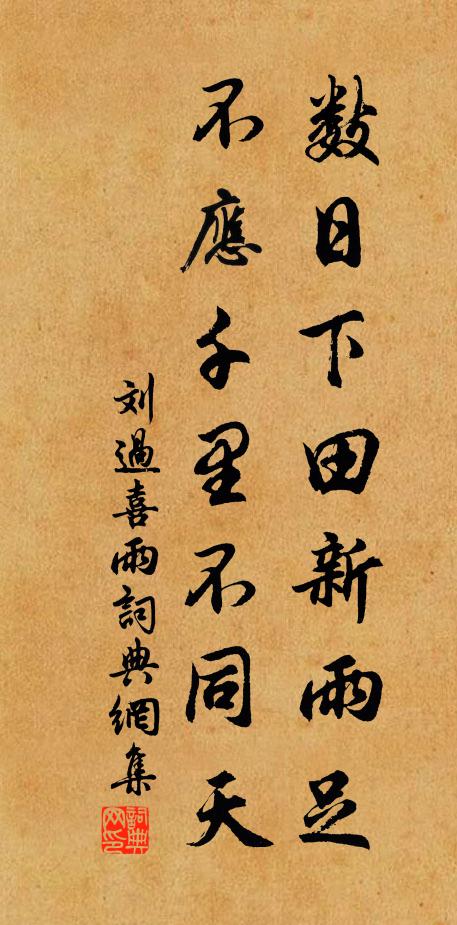 数日下田新雨足
不應千里不同天
刘過喜雨詞典網集
詞典网印